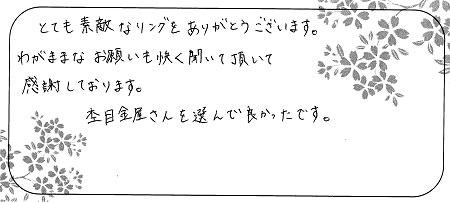 とても素敵なリングをありがとうございます。
わがままなお願いも快く聞いて頂いて
感謝しております。
杢目金屋さんを選んで良かったです。